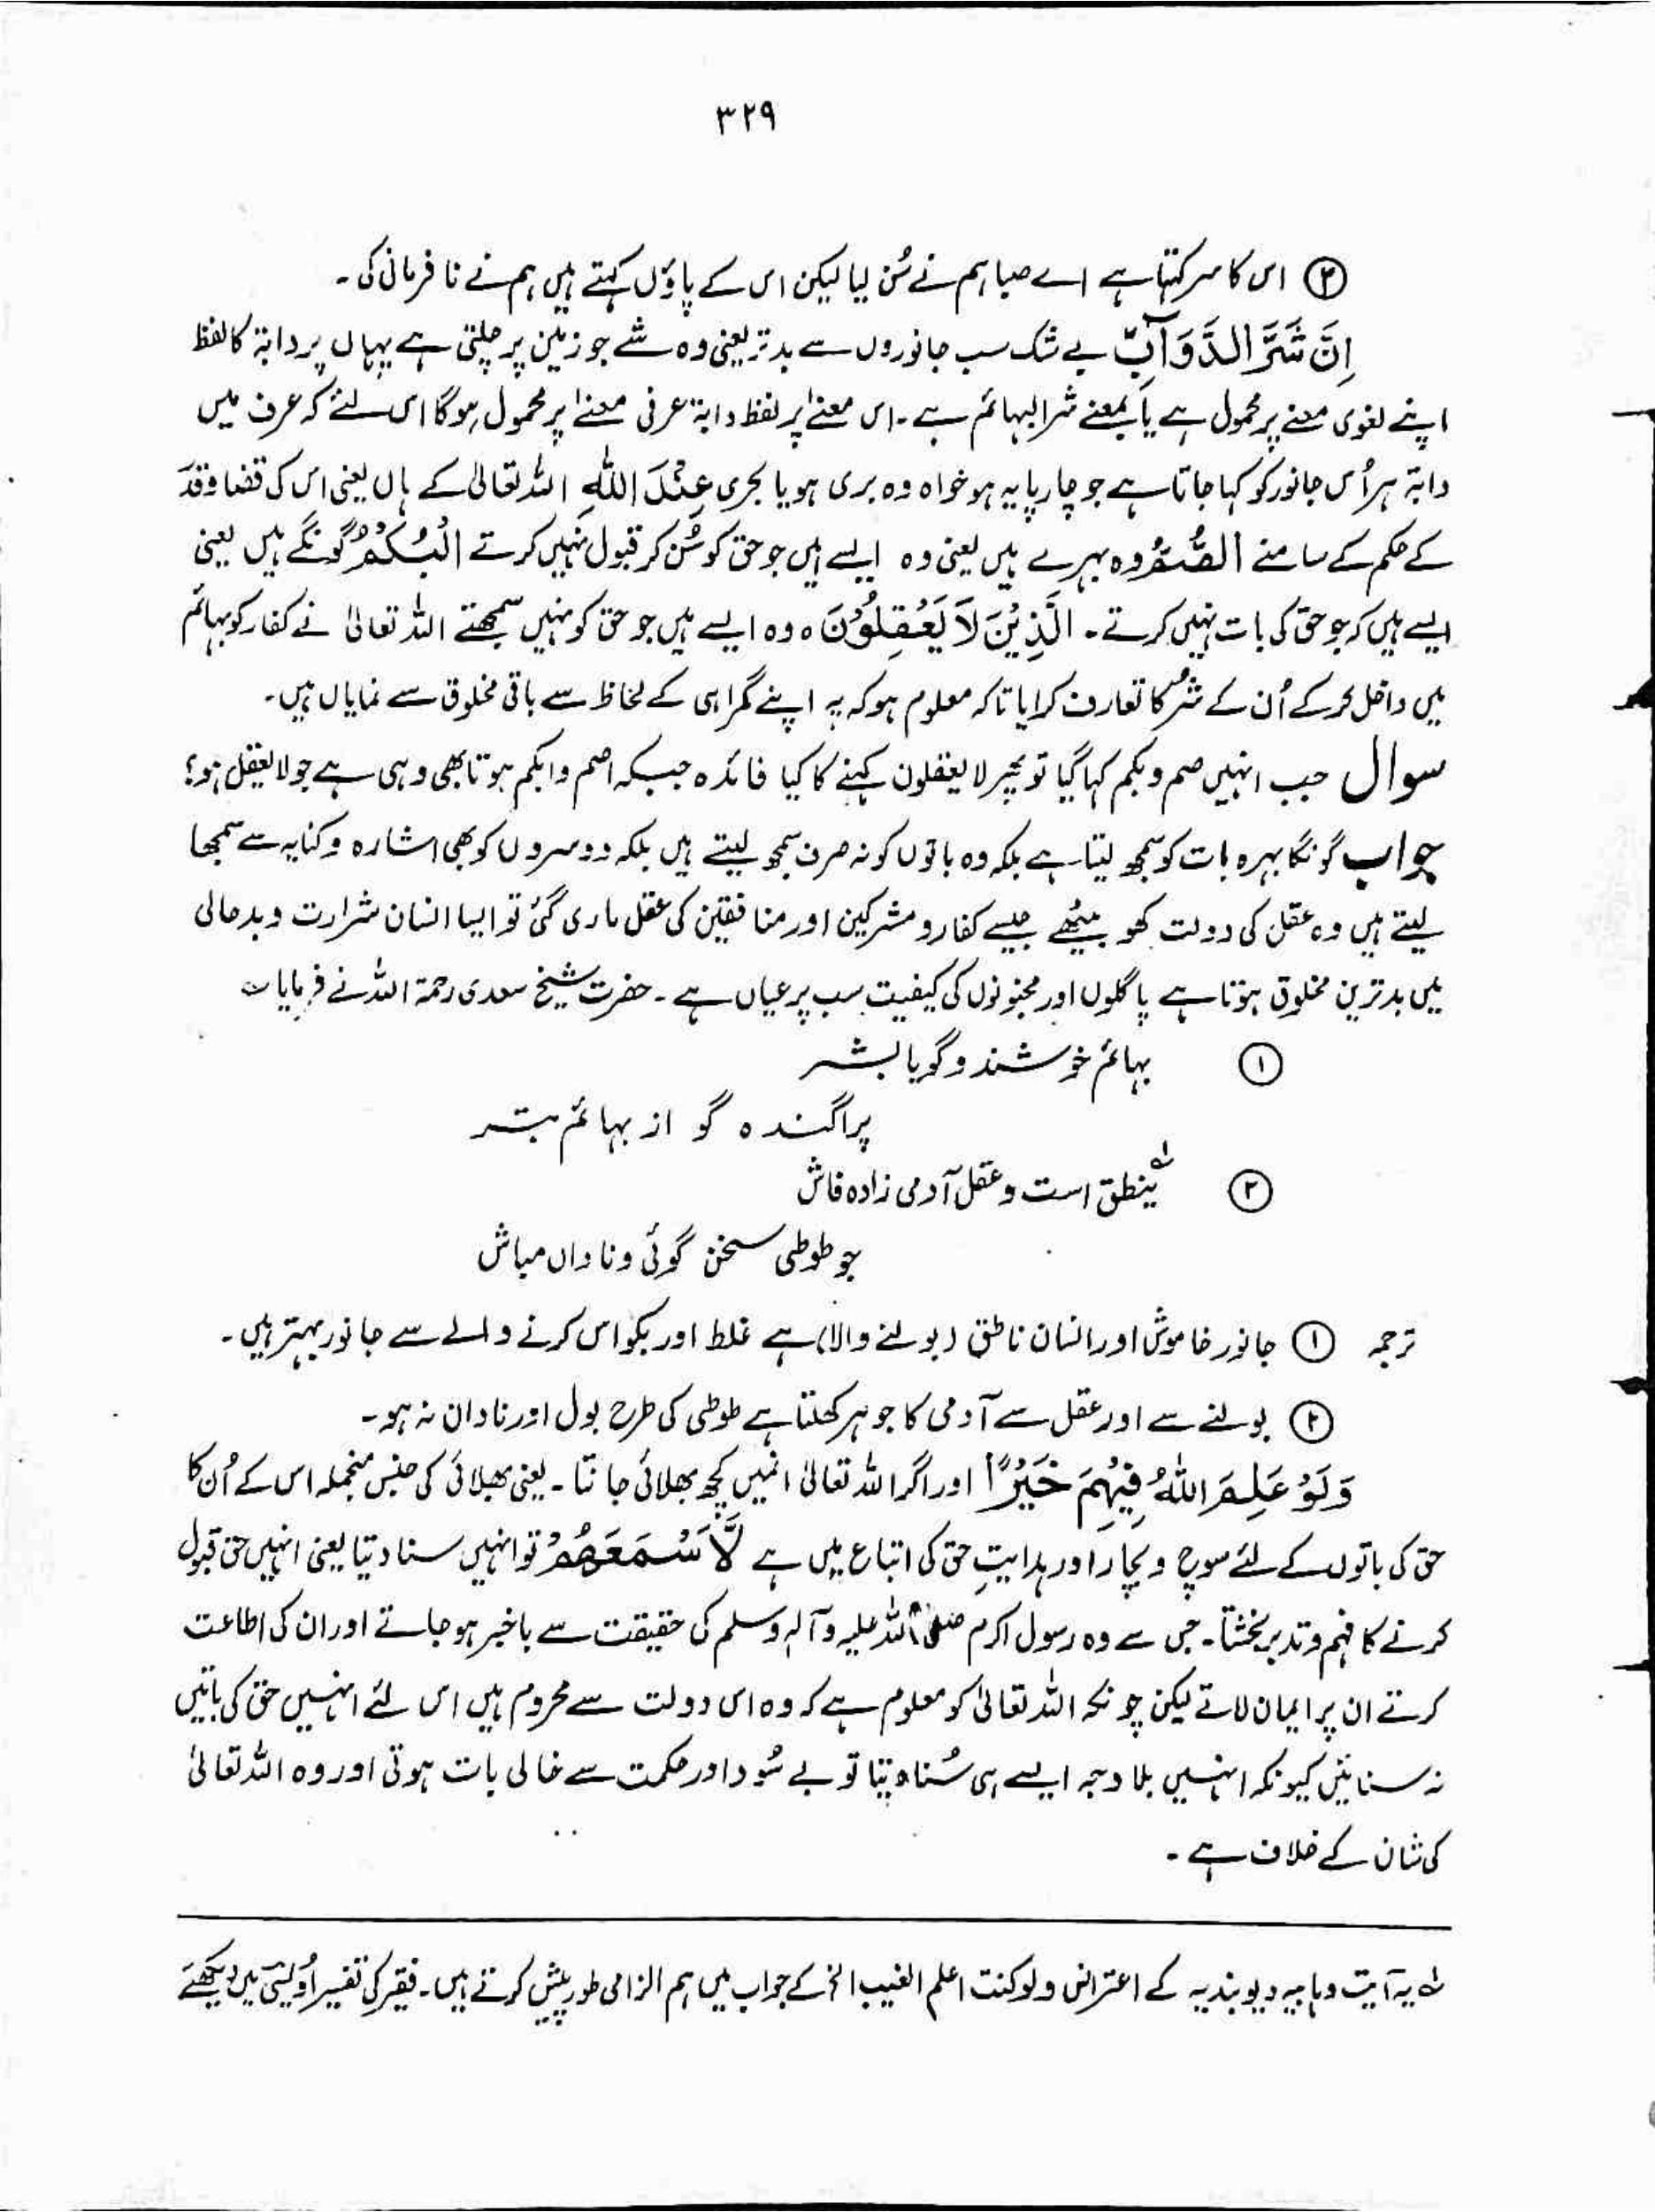 ۳۲۹
③ اس کا سر کہتا ہے اے صبا ہم نے سُن لیا لیکن اس کے پاؤں کہتے ہیں ہم نے نا فرمانی کی ۔
اِنَّ شَرَّ الدَّوَآبِّ بے شک سب جانوروں سے بدتر یعنی وہ شے جو زمین پر چلتی ہے یہاں پر دابۃ کا لفظ
اپنے لغوی معنے پر محمول ہے یا بمعنے شر البہائم ہے ۔ اس معنےٰ پر لفظ دابۃ عرفی معنےٰ پر محمول ہوگا اس لئے کہ عرف میں
دابۃ ہر اُس جانور کو کہا جاتا ہے جو چار پایہ ہو خواہ وہ بری ہو یا بحری عِنْدَ اللّٰهِ اللہ تعالیٰ کے ہاں یعنی اس کی قضا و قدر
کے حکم کے سامنے الصُّمُّ وہ بہرے ہیں یعنی وہ ایسے ہیں جو حق کو سُن کر قبول نہیں کرتے الْبُكْمُ گونگے ہیں یعنی
ایسے ہیں کہ جو حق کی بات نہیں کرتے ۔ الَّذِيْنَ لَا يَعْقِلُوْنَ ہ وہ ایسے ہیں جو حق کو نہیں سمجھتے اللہ تعالیٰ نے کفار کو بہائم
میں داخل کر کے اُن کے شر کا تعارف کرایا تاکہ معلوم ہو کہ یہ اپنے گمراہی کے لحاظ سے باقی مخلوق سے نمایاں ہیں ۔
سوال جب انہیں صم و بکم کہا گیا تو پھر لا یعقلون کہنے کا کیا فائدہ جبکہ اصم و ابکم ہوتا بھی وہی ہے جو لا یعقل ہو؟
جواب گونگا بہرہ بات کو سمجھ لیتا ہے بلکہ وہ باتوں کو نہ صرف سمجھ لیتے ہیں بلکہ دوسروں کو بھی اشارہ و کنایہ سے سمجھا
لیتے ہیں وہ عقل کی دولت کھو بیٹھے جیسے کفار و مشرکین اور منافقین کی عقل ماری گئی تو ایسا انسان شرارت و بدحالی
میں بدترین مخلوق ہوتا ہے پاگلوں اور مجنونوں کی کیفیت سب پر عیاں ہے ۔ حضرت شیخ سعدی رحمۃ اللہ نے فرمایا ؎
① بہائم خوشند و گویا بشر
پراگندہ گو از بہائم بتر
② بنطق است و عقل آدمی زادہ فاش
چو طوطی سخن گوئی و ناداں مباش
ترجمہ ① جانور خاموش اور انسان ناطق (بولنے والا) ہے غلط اور بکواس کرنے والے سے جانور بہتر ہیں ۔
② بولنے سے اور عقل سے آدمی کا جوہر کھلتا ہے طوطی کی طرح بول اور نادان نہ ہو ۔
وَلَوْ عَلِمَ اللّٰهُ فِيْهِمْ خَيْرًا اور اگر اللہ تعالیٰ انمیں کچھ بھلائی جانتا ۔ یعنی بھلائی کی جنس منجملہ اس کے اُن کا
حق کی باتوں کے لئے سوچ و بچار اور ہدایتِ حق کی اتباع میں ہے لَّاَسْمَعَهُمْ تو انہیں سنا دیتا یعنی انہیں حق قبول
کرنے کا فہم و تدبر بخشتا ۔ جس سے وہ رسول اکرم صلی اللہ علیہ و آلہ وسلم کی حقیقت سے باخبر ہو جاتے اور ان کی اطاعت
کرتے ان پر ایمان لاتے لیکن چونکہ اللہ تعالیٰ کو معلوم ہے کہ وہ اس دولت سے محروم ہیں اس لئے انہیں حق کی باتیں
نہ سنائیں کیونکہ انہیں بلا وجہ ایسے ہی سُنا دیتا تو بے سُود اور حکمت سے خالی بات ہوتی اور وہ اللہ تعالیٰ
کی شان کے خلاف ہے ۔
لہ یہ آیت وہابیہ دیوبندیہ کے اعتراض ولو کنت اعلم الغیب الخ کے جواب میں ہم الزامی طور پیش کرتے ہیں ۔ فقیر کی تفسیر اُویسی میں دیکھئے